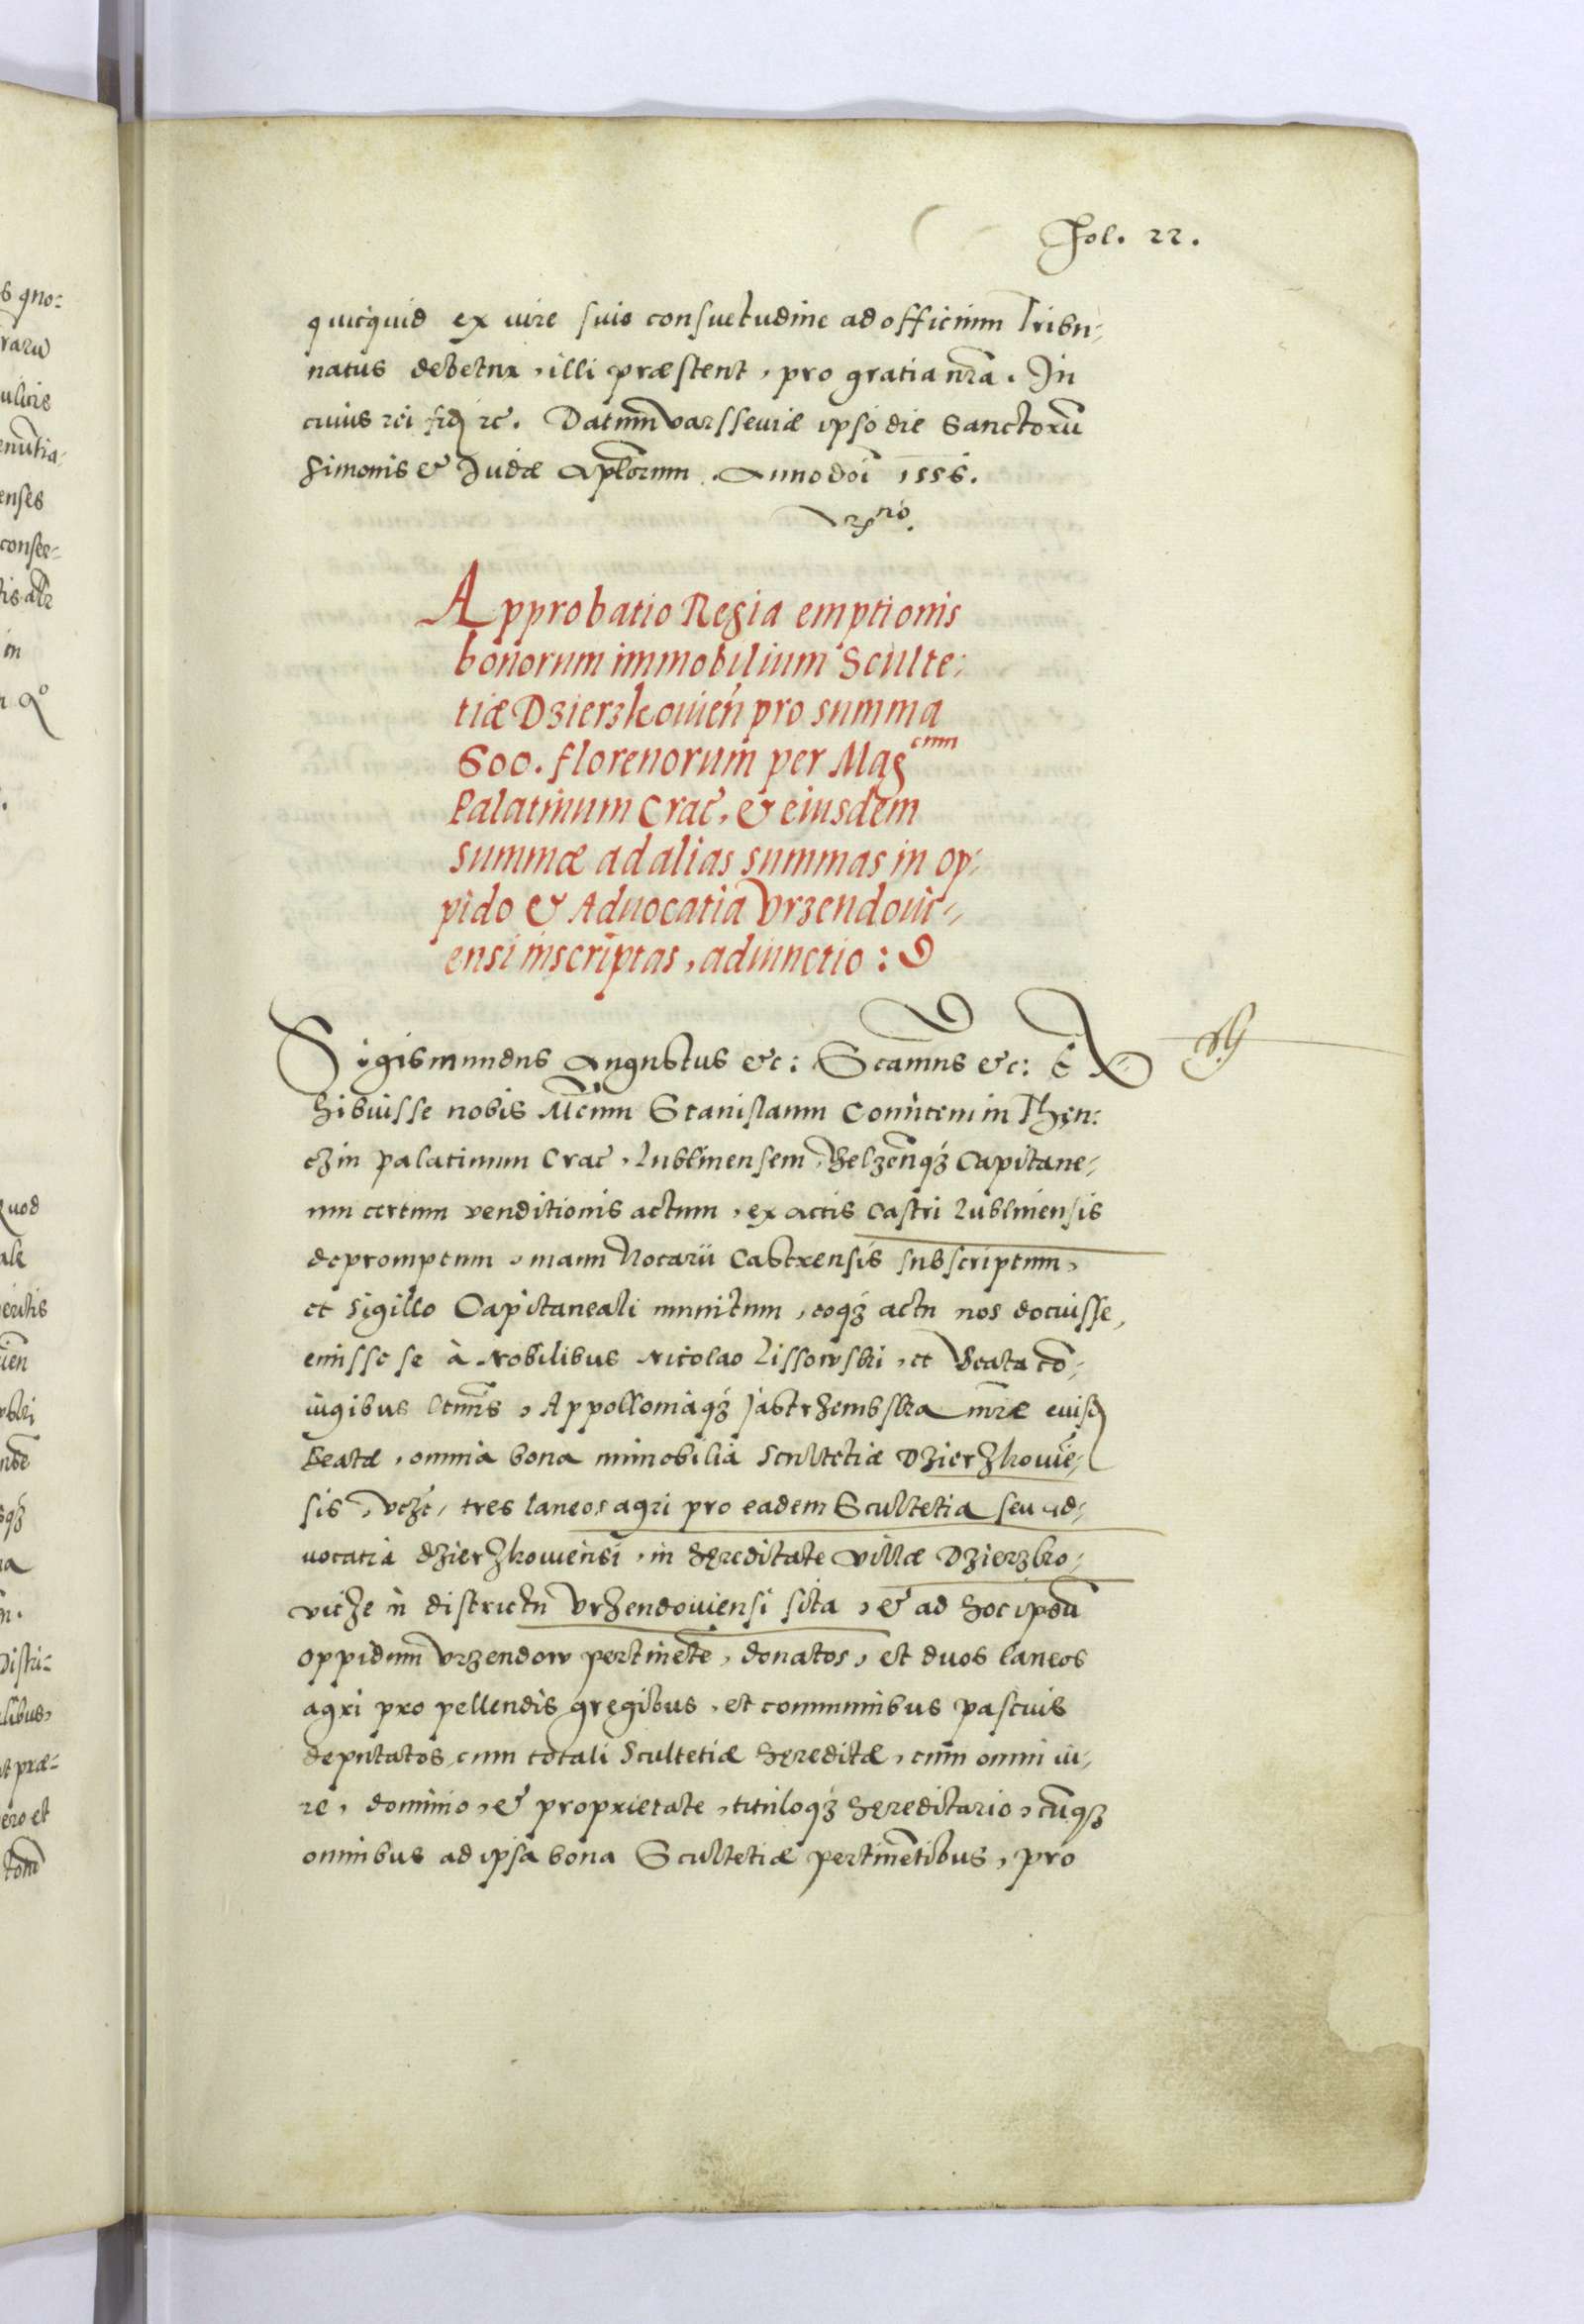 Fol. 22.
quicquid ex iure suis consuetudine ad officium Tribu-
natus debetur, illi præstent, pro gratia nr̃a. In
cuius rei fidẽ rc̃. Datum Varsseuiæ ipso die Sanctorũ
Simonis & Judæ Ap̃lorum. Anno doĩ 1556.
Approbatio Regia emptionis
bonorum immobilium Sculte:
tiæ Dzierzkouień pro summa
600. florenorum per Mag cum
Palatinum Crac̃, & eiusdem
summæ ad alias summas in op:
pido & Aduocatia Vrzendoui-
ensi inscriptas, adiunctio:
Sigismundus Augustus &c: S̃camus &c: Ex
hibuisse nobis Mc̃um Stanislaum Comitem in Thęn:
czin Palatinum Crac̃, Lublinensem, Belzeñqȝ Capitane-
um certum venditionis actum, ex actis Castri Lublinensis
depromptum, manu Notarii Castrensis subscriptum,
et sigillo Capitaneali munitum, eoqȝ actu nos docuisse,
emisse se à Nobilibus Nicolao Lissowski, et Beata cõ-
iugibus ltm̃is, Appolloniaqȝ Jastrzembska mr̃e eiusd
Beatæ, omnia bona immobilia Scultetiæ Dzierzkouiẽ-
sis, vcz̃, tres laneos agri pro eadem Scultetia seu ad-
uocatia Dzierzkouiensi, in hęreditate villæ Dzierzko-
vicze in districtu Vrzendouiensi sita, & ad hoc ipsũ
oppidum Vrzendow pertinẽte, donatos, et duos laneos
agri pro pellendis gregibus, et communibus pascuis
deputatos, cum totali Scultetiæ hęreditæ, cum omni iu-
re, dominio, & proprietate, tituloqȝ hęreditario, cũqȝ
omnibus ad ipsa bona Scultetiæ pertinẽtibus, pro